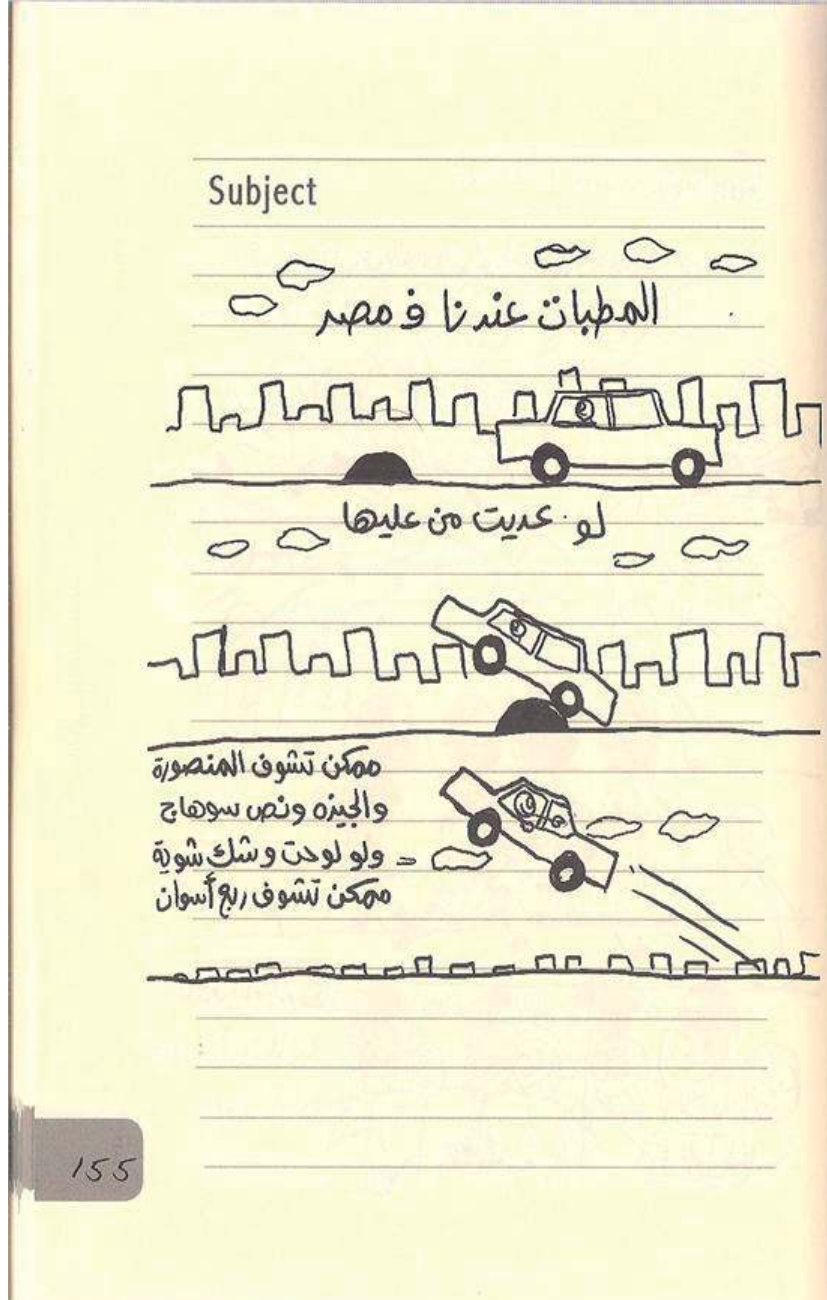 Subject
المطبات عندنا ف مصر
لو عديت من عليها
ممكن تشوف المنصورة
والجيزه ونص سوهاج
ولو لوحت وشك شوية =
ممكن تشوف ربع أسوان
155